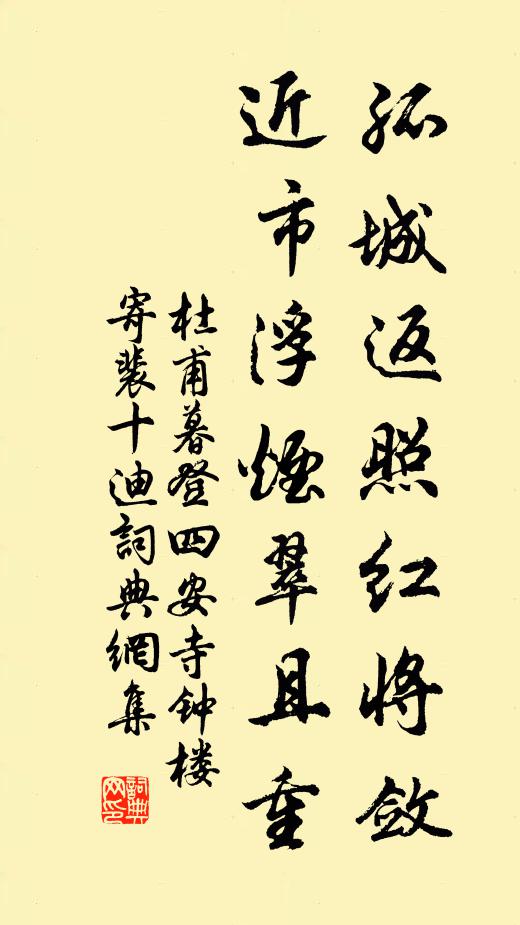 孤城返照红将敛
近市浮煙翠且重
杜甫暮登四安寺钟楼
寄裴十迪詞典網集
詞典
网印